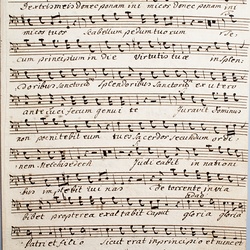 dextris meis donec ponam ini micos donec ponam ini
micos tuos Scabellum pedum tuorum
cum principium in die Virtutis tuæ in splen
doribus Sanctorum Splendoribus Sanctorum ex utero
ante luciferum genui te Juravit Dominus
non penitebit eum tu es Sacerdos secundum ordi
nem Melchisedech Judicabit in nationi
bus implebit ruinas de torrente in via
bidet propterea exaltabit Caput gloria gloria
Patri et filio Sicut erat in principio et nunc et